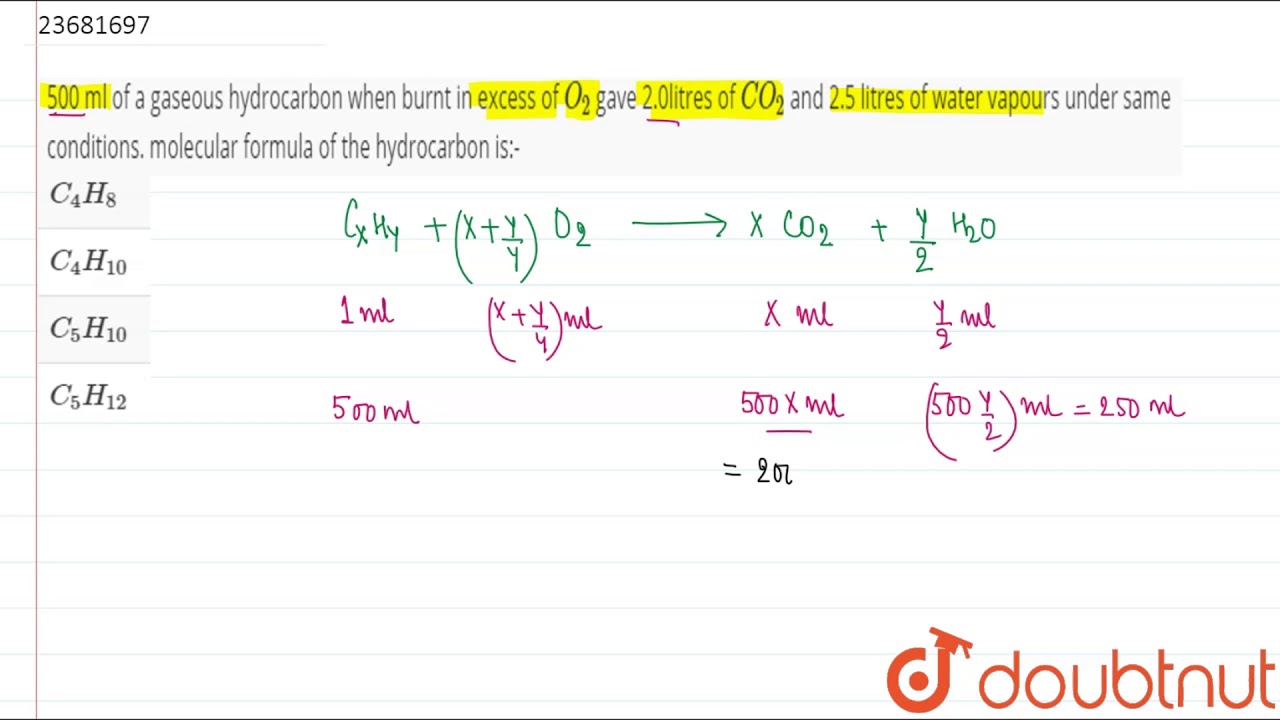 23681697
500 ml of a gaseous hydrocarbon when burnt in excess of O₂ gave 2.0litres of CO₂ and 2.5 litres of water vapours under same
conditions. molecular formula of the hydrocarbon is:-
C₄H₈
C₄H₁₀
C₅H₁₀
C₅H₁₂
CxHy + (x+y/4) O₂ ⟶ x CO₂ + y/2 H₂O
1 ml (x+y/4) ml x ml y/2 ml
500 ml 500 x ml (500 y/2) ml = 250 ml
= 200
doubtnut